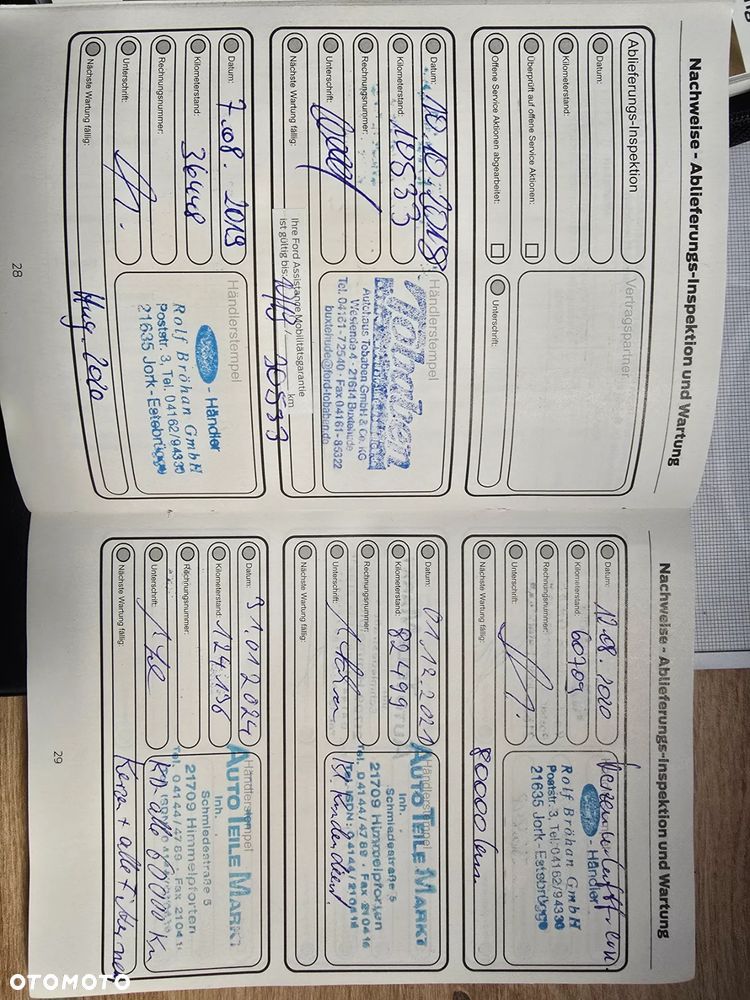 Nachweise - Ablieferungs-Inspektion und Wartung
Ablieferungs-Inspektion
Datum:
Kilometerstand:
Überprüft auf offene Service Aktionen:
Offene Service Aktionen abgearbeitet:
Vertragspartner
Unterschrift:
Datum: 10.10.2018
Kilometerstand: 10533
Rechnungsnummer:
Unterschrift:
Nächste Wartung fällig:
Händlerstempel
Autohaus Tobaben GmbH & Co. KG
Westende 4 - 21614 Buxtehude
Tel. 04161-72540 - Fax 04161-85322
buxtehude@ford-tobaben.de
Ihre Ford Assistance Mobilitätsgarantie
ist gültig bis: 10/19 / 30533 km
Datum: 7.08.2019
Kilometerstand: 36448
Rechnungsnummer:
Unterschrift:
Nächste Wartung fällig: Aug. 2020
Händlerstempel
- Händler
Rolf Bröhan GmbH
Poststr. 3, Tel. 04162/94330
21635 Jork-Estebrügge
28
Nachweise - Ablieferungs-Inspektion und Wartung
Datum: 12.08.2020
Kilometerstand: 60709
Rechnungsnummer:
Unterschrift:
Nächste Wartung fällig: 80000 km
- Händler
Rolf Bröhan GmbH
Poststr. 3, Tel.: 04162/94330
21635 Jork-Estebrügge
Datum: 01.12.2021
Kilometerstand: 82499
Rechnungsnummer:
Unterschrift:
Nächste Wartung fällig:
Händlerstempel
AUTO TEILE MARKT
Inh.
Schmiedestraße 5
21709 Himmelpforten
Tel. 04144/4789 - Fax 210416
ISDN: 04144/210416
Datum: 31.01.2024
Kilometerstand: 124.136
Rechnungsnummer:
Unterschrift:
Nächste Wartung fällig:
Händlerstempel
AUTO TEILE MARKT
Inh.
Schmiedestraße 5
21709 Himmelpforten
Tel. 04144/4789 - Fax 210416
KD. alle 60000 Km
Kerzen + alle Filter neu
29
OTOMOTO